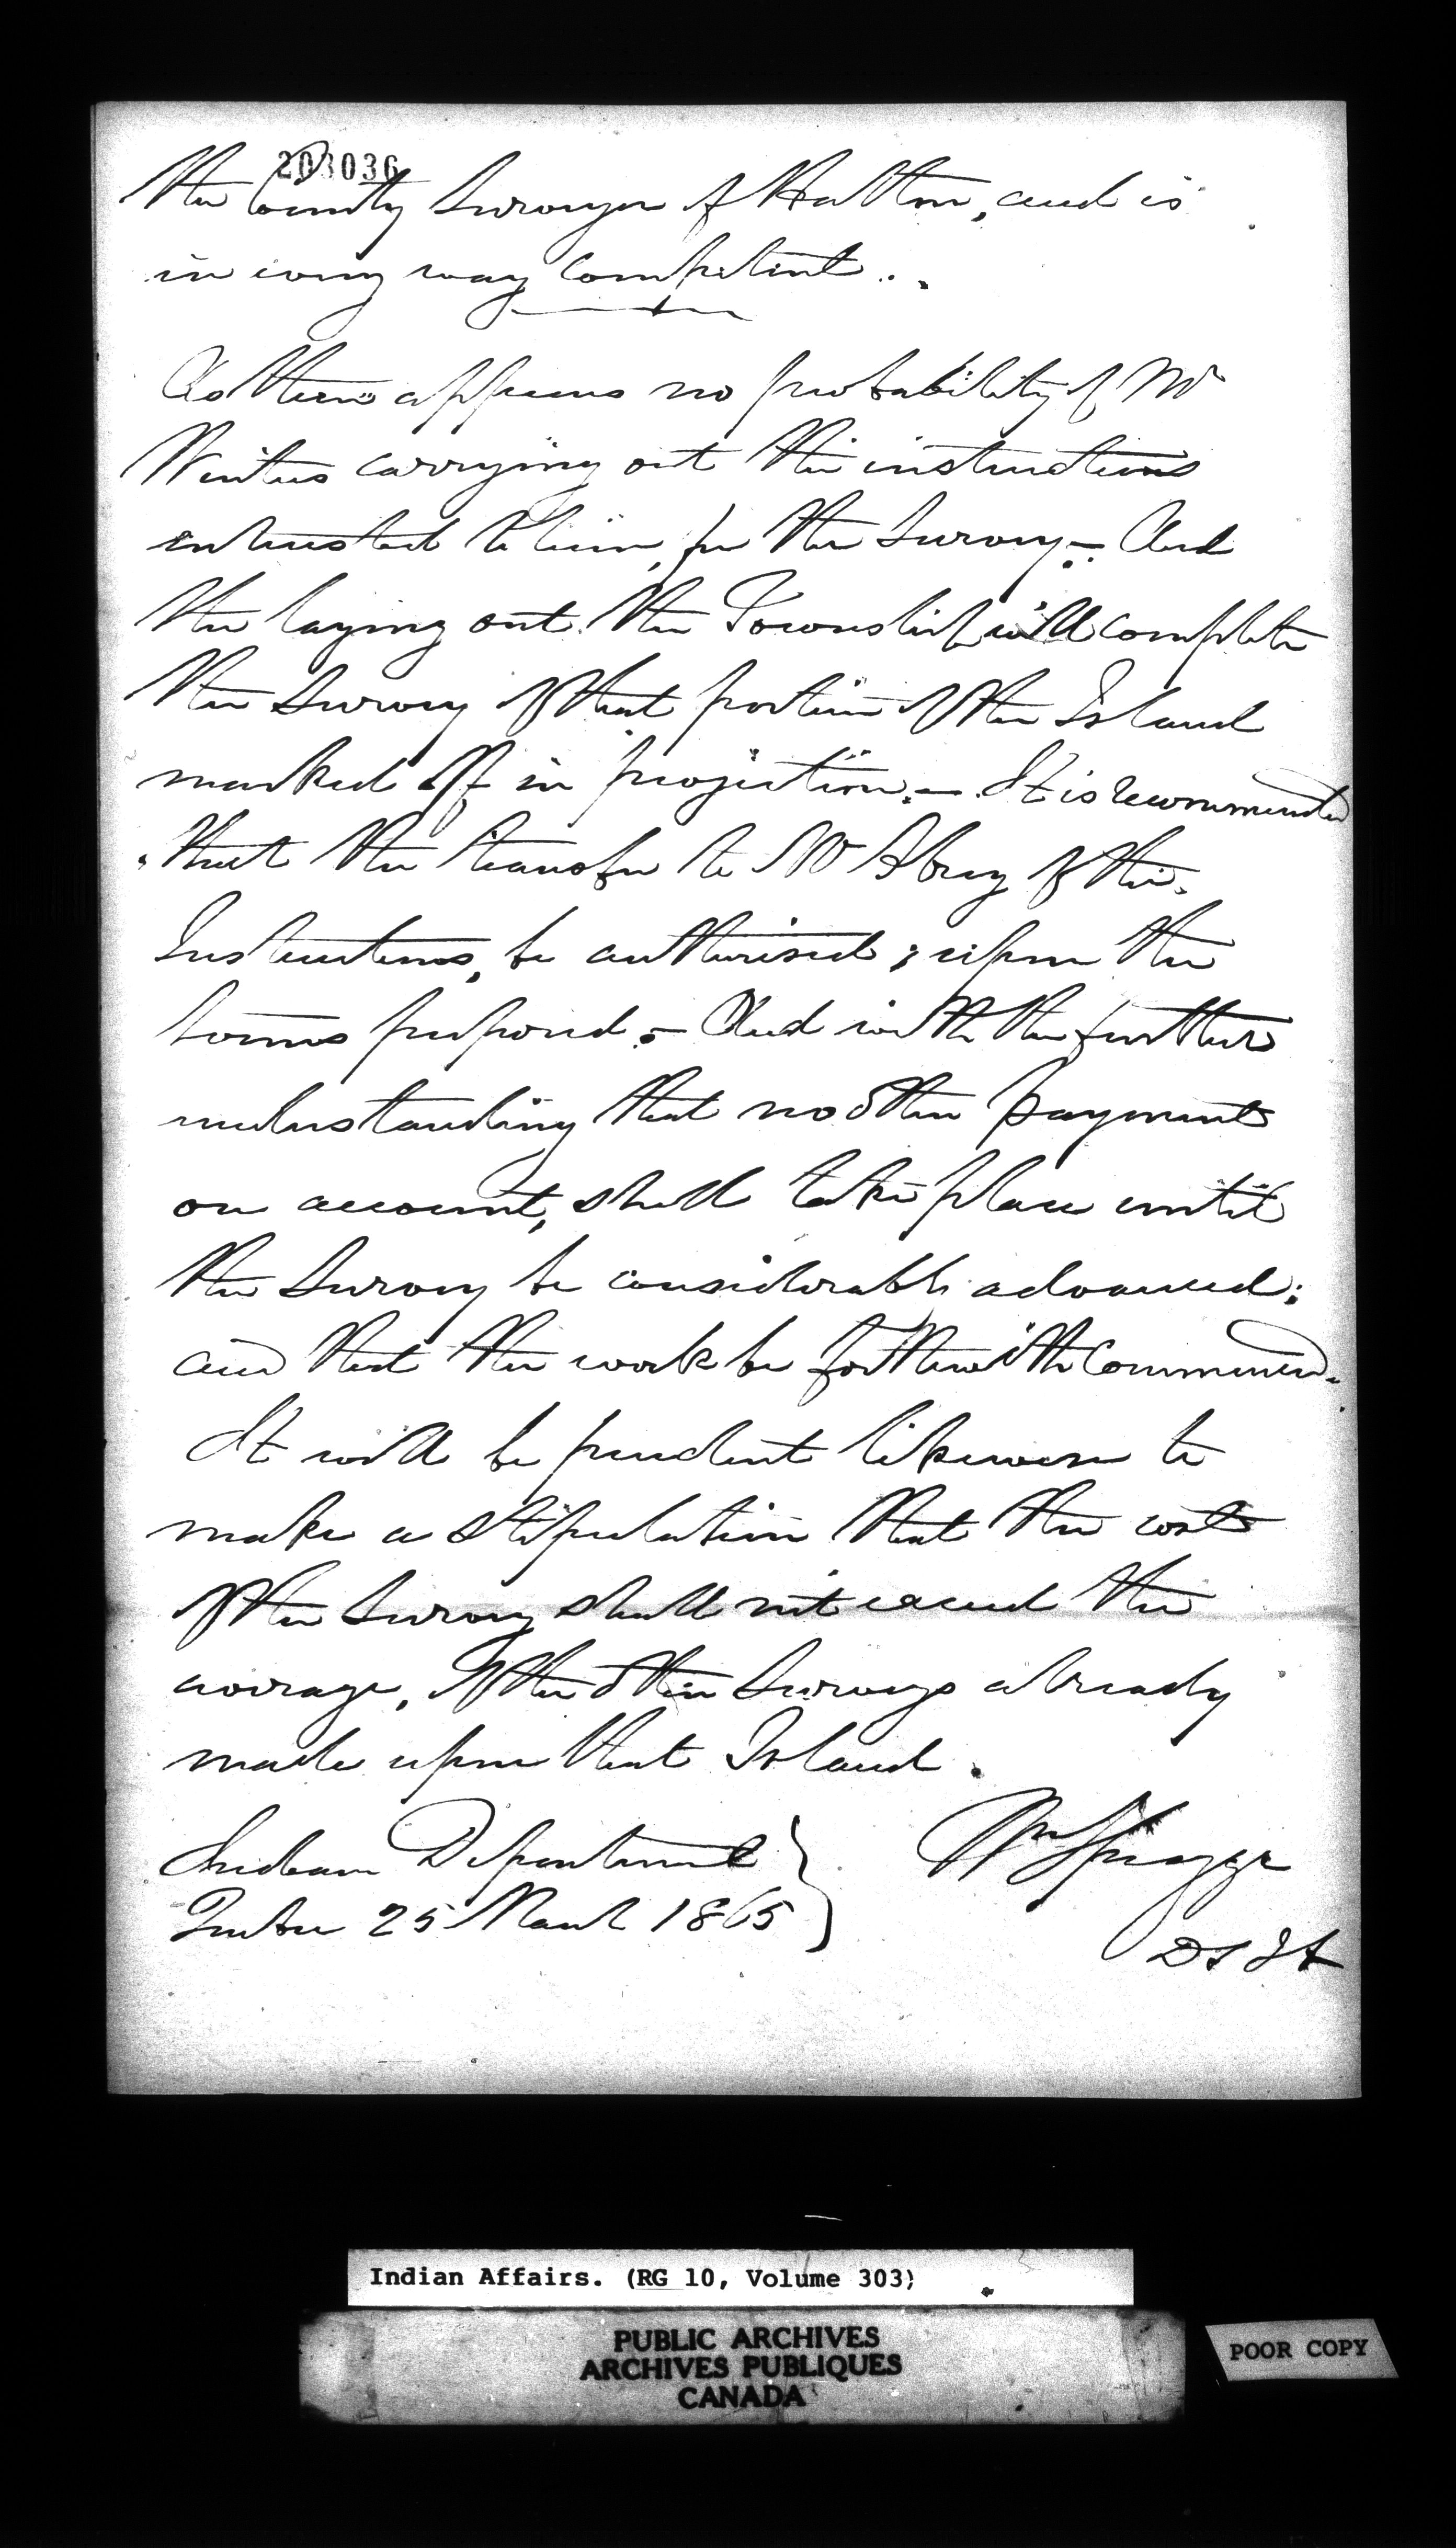 203036
the County Surveyor of Halton, and is
in every way competent.
As there appears no probability of Mr
Winters carrying out the instructions
entrusted to him, for the Survey – And
the laying out the Township will complete
the Survey of that portion of the Island
marked off in projection. – It is recommended
that the transfer to Mr Abrey of the
Instructions, be authorised; upon the
terms proposed. – And with the further
understanding that no other payments
on account, shall take place until
the Survey be considerably advanced;
and that the work be forthwith Commenced.
It will be prudent likewise to
make a stipulation that the costs
of the Survey shall not exceed the
average, of the other Surveys already
made upon that Island.
Indian Department
Quebec 25 March 1865
Wm Spragge
D S I A
Indian Affairs. (RG 10, Volume 303)
PUBLIC ARCHIVES
ARCHIVES PUBLIQUES
CANADA
POOR COPY